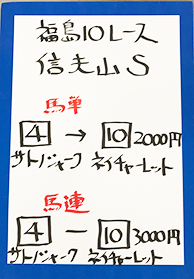 福島10レース
信夫山S
馬単
4 → 10 2000円
サトノシャーク ネイチャーレット
馬連
4 − 10 3000円
サトノシャーク ネイチャーレット